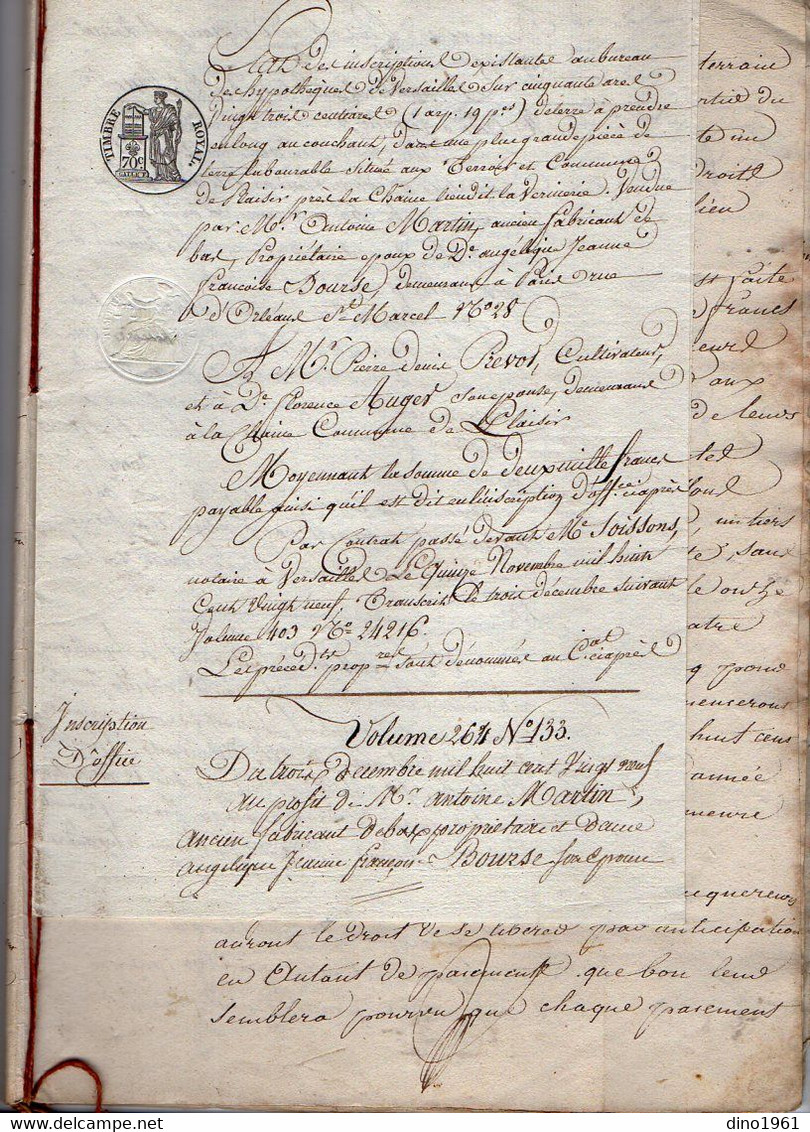 TIMBRE ROYAL
70 c.
Etat des inscriptions existantes au bureau
des hypothèques de Versailles sur cinquante ares
Vingt trois centiares (1 arp. 19 p.es) de terre à prendre
en long au couchant, dans une plus grande pièce de
terre labourable située aux Terroir et Commune
de Plaisir près la Chaine lieudit la Verinerie. Vendue
par M.r Antoine Martin, ancien fabricant de
bas, Propriétaire epoux de D.e angélique Jeanne
françoise Bourse demeurant à Paris rue
d'Orléans S.t Marcel N.o 28
A M.r Pierre denis Prevot, Cultivateur,
et à D.e florence Auger son epouse, demeurans
à la Chaine Commune de Plaisir
Moyennant la somme de deux mille francs
payable ainsi qu'il est dit en l'inscription d'office ci après
Par Contrat passé devant M.e Soissons,
notaire à Versailles Le Quinze Novembre mil huit
Cent Vingt neuf. Transcrit le trois décembre suivant
Volume 403 N.o 24216.
Les précéd.ts prop.res sont dénommés au C.at ci après
Inscription
D'office
Volume 264 N.o 133.
Du trois décembre mil huit cent Vingt neuf
au profit de M.r Antoine Martin,
ancien fabricant de bas propriétaire et Dame
angelique Jeanne françoise Bourse son epouse
terrain
droite
lien
faite
francs
aux
de leurs
un tiers
sans
le onze
huit cens
année
auront le droit de se libérer par anticipation
en Autant de paiements que bon leur
semblera pourvu que chaque paiement
dino1961